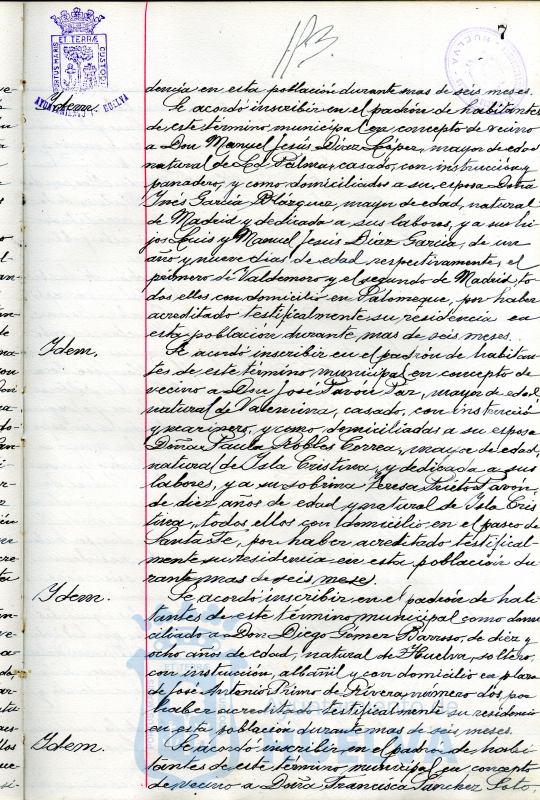 7
PORTUS MARIS ET TERRÆ CUSTODIA
AYUNTAMIENTO DE HUELVA
HUELVA
dencia en esta población durante mas de seis meses.
Ydem. Se acordó inscribir en el padrón de habitantes
de este término municipal en concepto de vecino
a Don Manuel Jesús Díaz López, mayor de edad
natural de La Palma, casado, con instrucción y
panadero, y como domiciliados a su esposa Doña
Inés García Blázquez, mayor de edad, natural
de Madrid y dedicada a sus labores, y a sus hi-
jos Luis y Manuel Jesús Díaz García, de un
año y nueve dias de edad respectivamente, el
primero de Valdemoro y el segundo de Madrid, to-
dos ellos con domicilio en Palomeque, por haber
acreditado testificalmente su residencia en
esta población durante mas de seis meses.
Ydem. Se acordó inscribir en el padrón de habitan-
tes de este término municipal en concepto de
vecino a Don José Pavón Paz, mayor de edad
natural de casado, con instrucción
y marinero, y como domiciliadas a su esposa
Doña Paula Robles Correa, mayor de edad,
natural de Isla Cristina, y dedicada a sus
labores, y a su sobrina Teresa Prieto Pavón,
de diez años de edad y natural de Isla Cris
tina, todos ellos con domicilio en el paseo de
Santa Fe, por haber acreditado testifical-
mente su residencia en esta población du-
rante mas de seis meses.
Ydem. Se acordó inscribir en el padrón de habi-
tantes de este término municipal como domi
ciliado a Don Diego Gómez Barroso, de diez y
ocho años de edad, natural de Huelva, soltero,
con instrucción, albañil y con domicilio en plaza
de José Antonio Primo de Rivera, número dos, por
haber acreditado testificalmente su residencia
en esta población durante mas de seis meses.
Ydem. Se acordó inscribir en el padrón de habi-
tantes de este término municipal en concepto
de vecino a Doña Francisca Sanchez Soto,
Ayuntamiento de
HUELVA